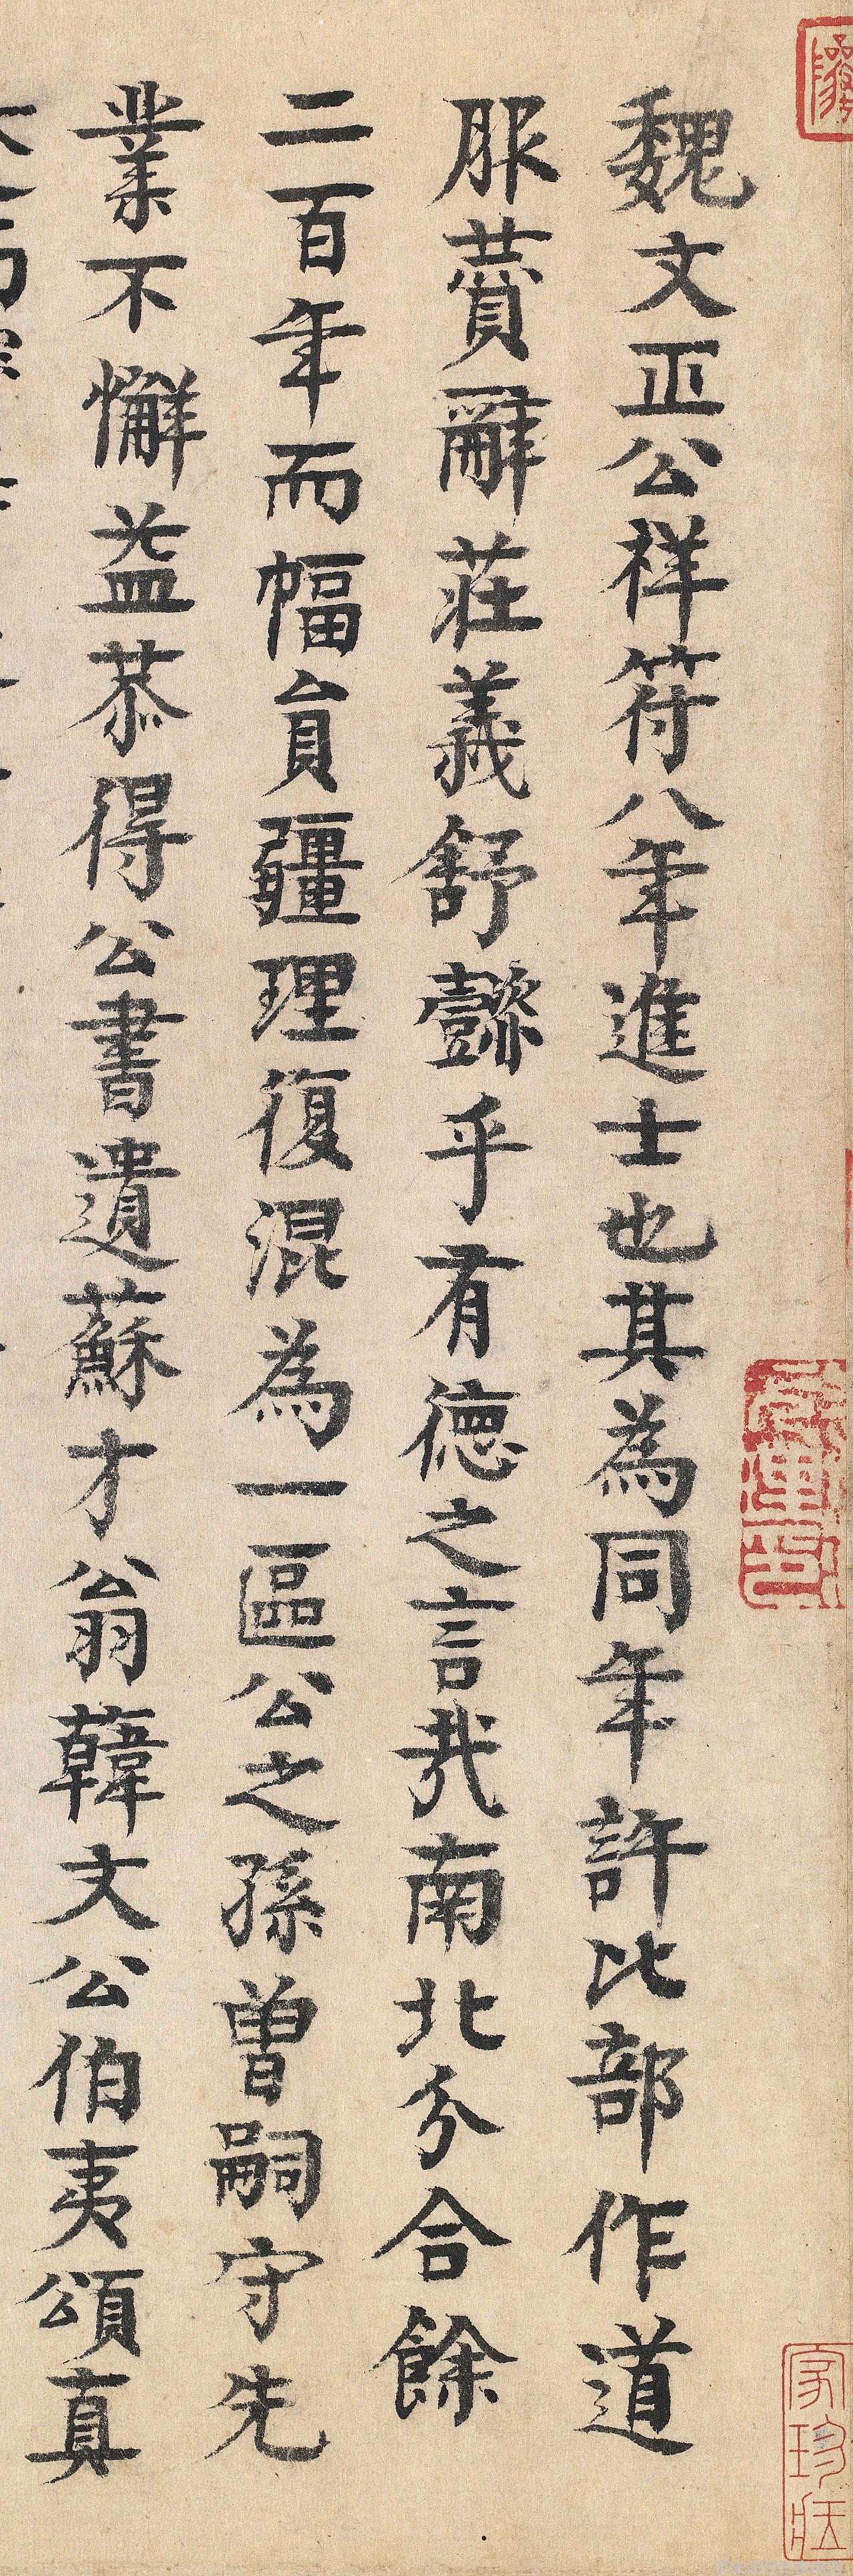 魏文正公祥符八年進士也其為同年許比部作道
服賛辭莊義舒懿乎有德之言哉南北分合餘
二百年而幅員疆理復混為一區公之孫曾嗣守先
業不懈益恭得公書遺蘇才翁韓文公伯夷頌真
家珍